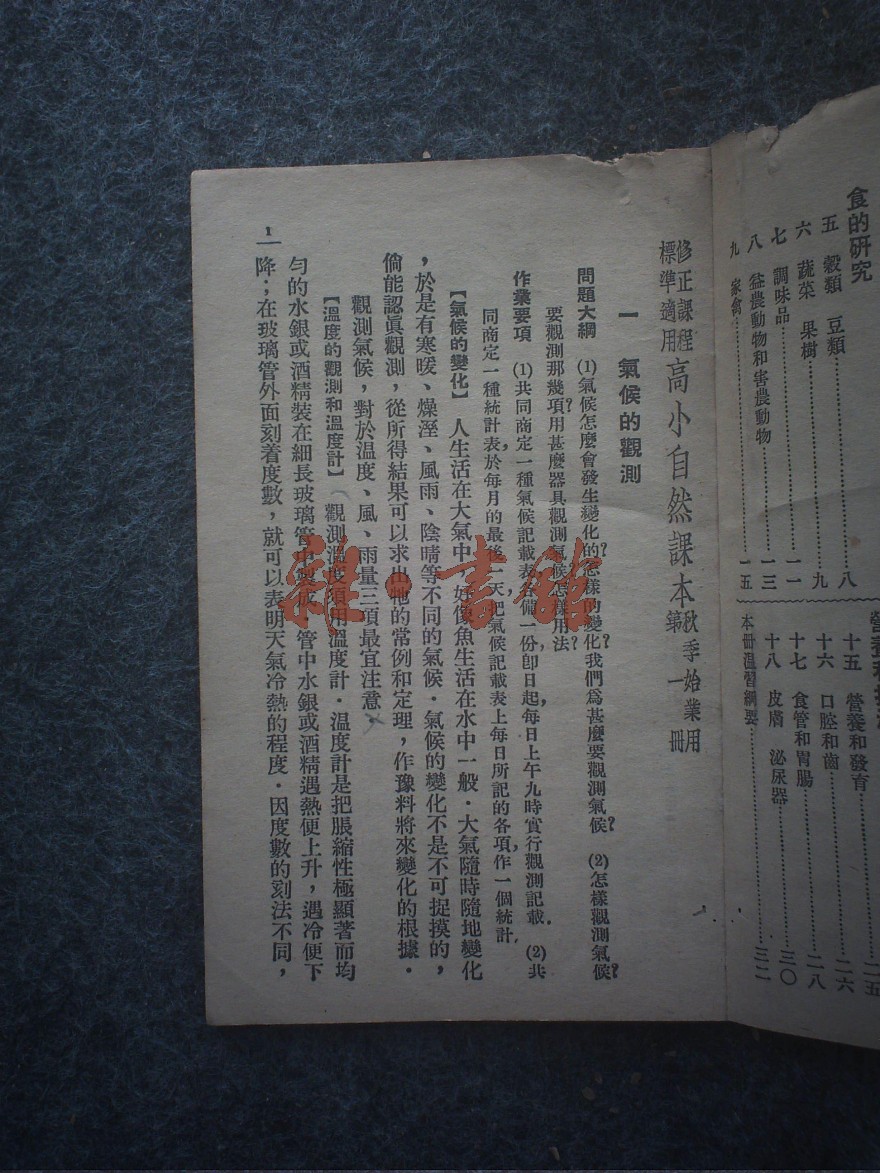 食的研究
五 穀類 豆類……八
六 蔬菜 果樹……九
七 調味品……一一
八 益農動物和害農動物……一三
九 家禽……一五
十五 營養和發育……二五
十六 口腔和齒……二六
十七 食管和胃腸……二八
十八 皮膚 泌尿器……三〇
本冊溫習綱要……三二
修正課程標準適用 高小自然課本 秋季始業用 第一冊
一 氣候的觀測
問題大綱 (1)氣候怎麼會發生變化的?怎樣的變化?我們爲甚麼要觀測氣候? (2)怎樣觀測氣候?
要觀測那幾項?用甚麼器具觀測氣候?怎樣用法?
作業要項 (1)共同商定一種氣候記載表,各備一份,卽日起,每日上午九時實行觀測記載. (2)共
同商定一種統計表,於每月的最後一天,把氣候記載表上每日所記的各項,作一個統計.
【氣候的變化】 人生活在大氣中,好像魚生活在水中一般.大氣隨時隨地變化
,於是有寒暖、燥溼、風雨、陰晴等不同的氣候.氣候的變化不是不可捉摸的,
倘能認眞觀測,從所得結果可以求出牠的常例和定理,作豫料將來變化的根據.
觀測氣候,對於温度、風、雨量三項最宜注意.
【溫度的觀測和溫度計】 觀測溫度須用溫度計.溫度計是把脹縮性極顯著而均
勻的水銀或酒精裝在細長玻璃管中製成.管中水銀或酒精遇熱便上升,遇冷便下
降;在玻璃管外面刻着度數,就可以表明天氣冷熱的程度.因度數的刻法不同,
1
雜·書館